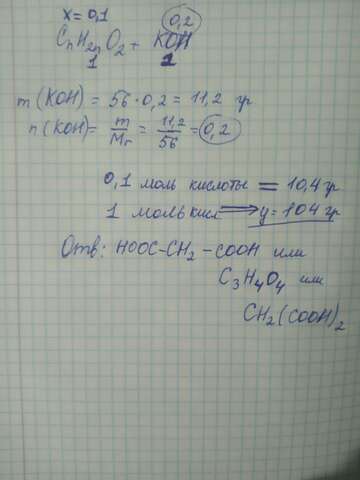 x = 0,1
0,2
CnH2nO2 + KOH
1 1
m (KOH) = 56 · 0,2 = 11,2 гр
n (KOH) = m/Mr = 11,2/56 = 0,2
0,1 моль кислоты = 10,4 гр
1 моль кисл ⟹ y = 104 гр
Отв: HOOC-CH2-COOH или
C3H4O4 или
CH2(COOH)2